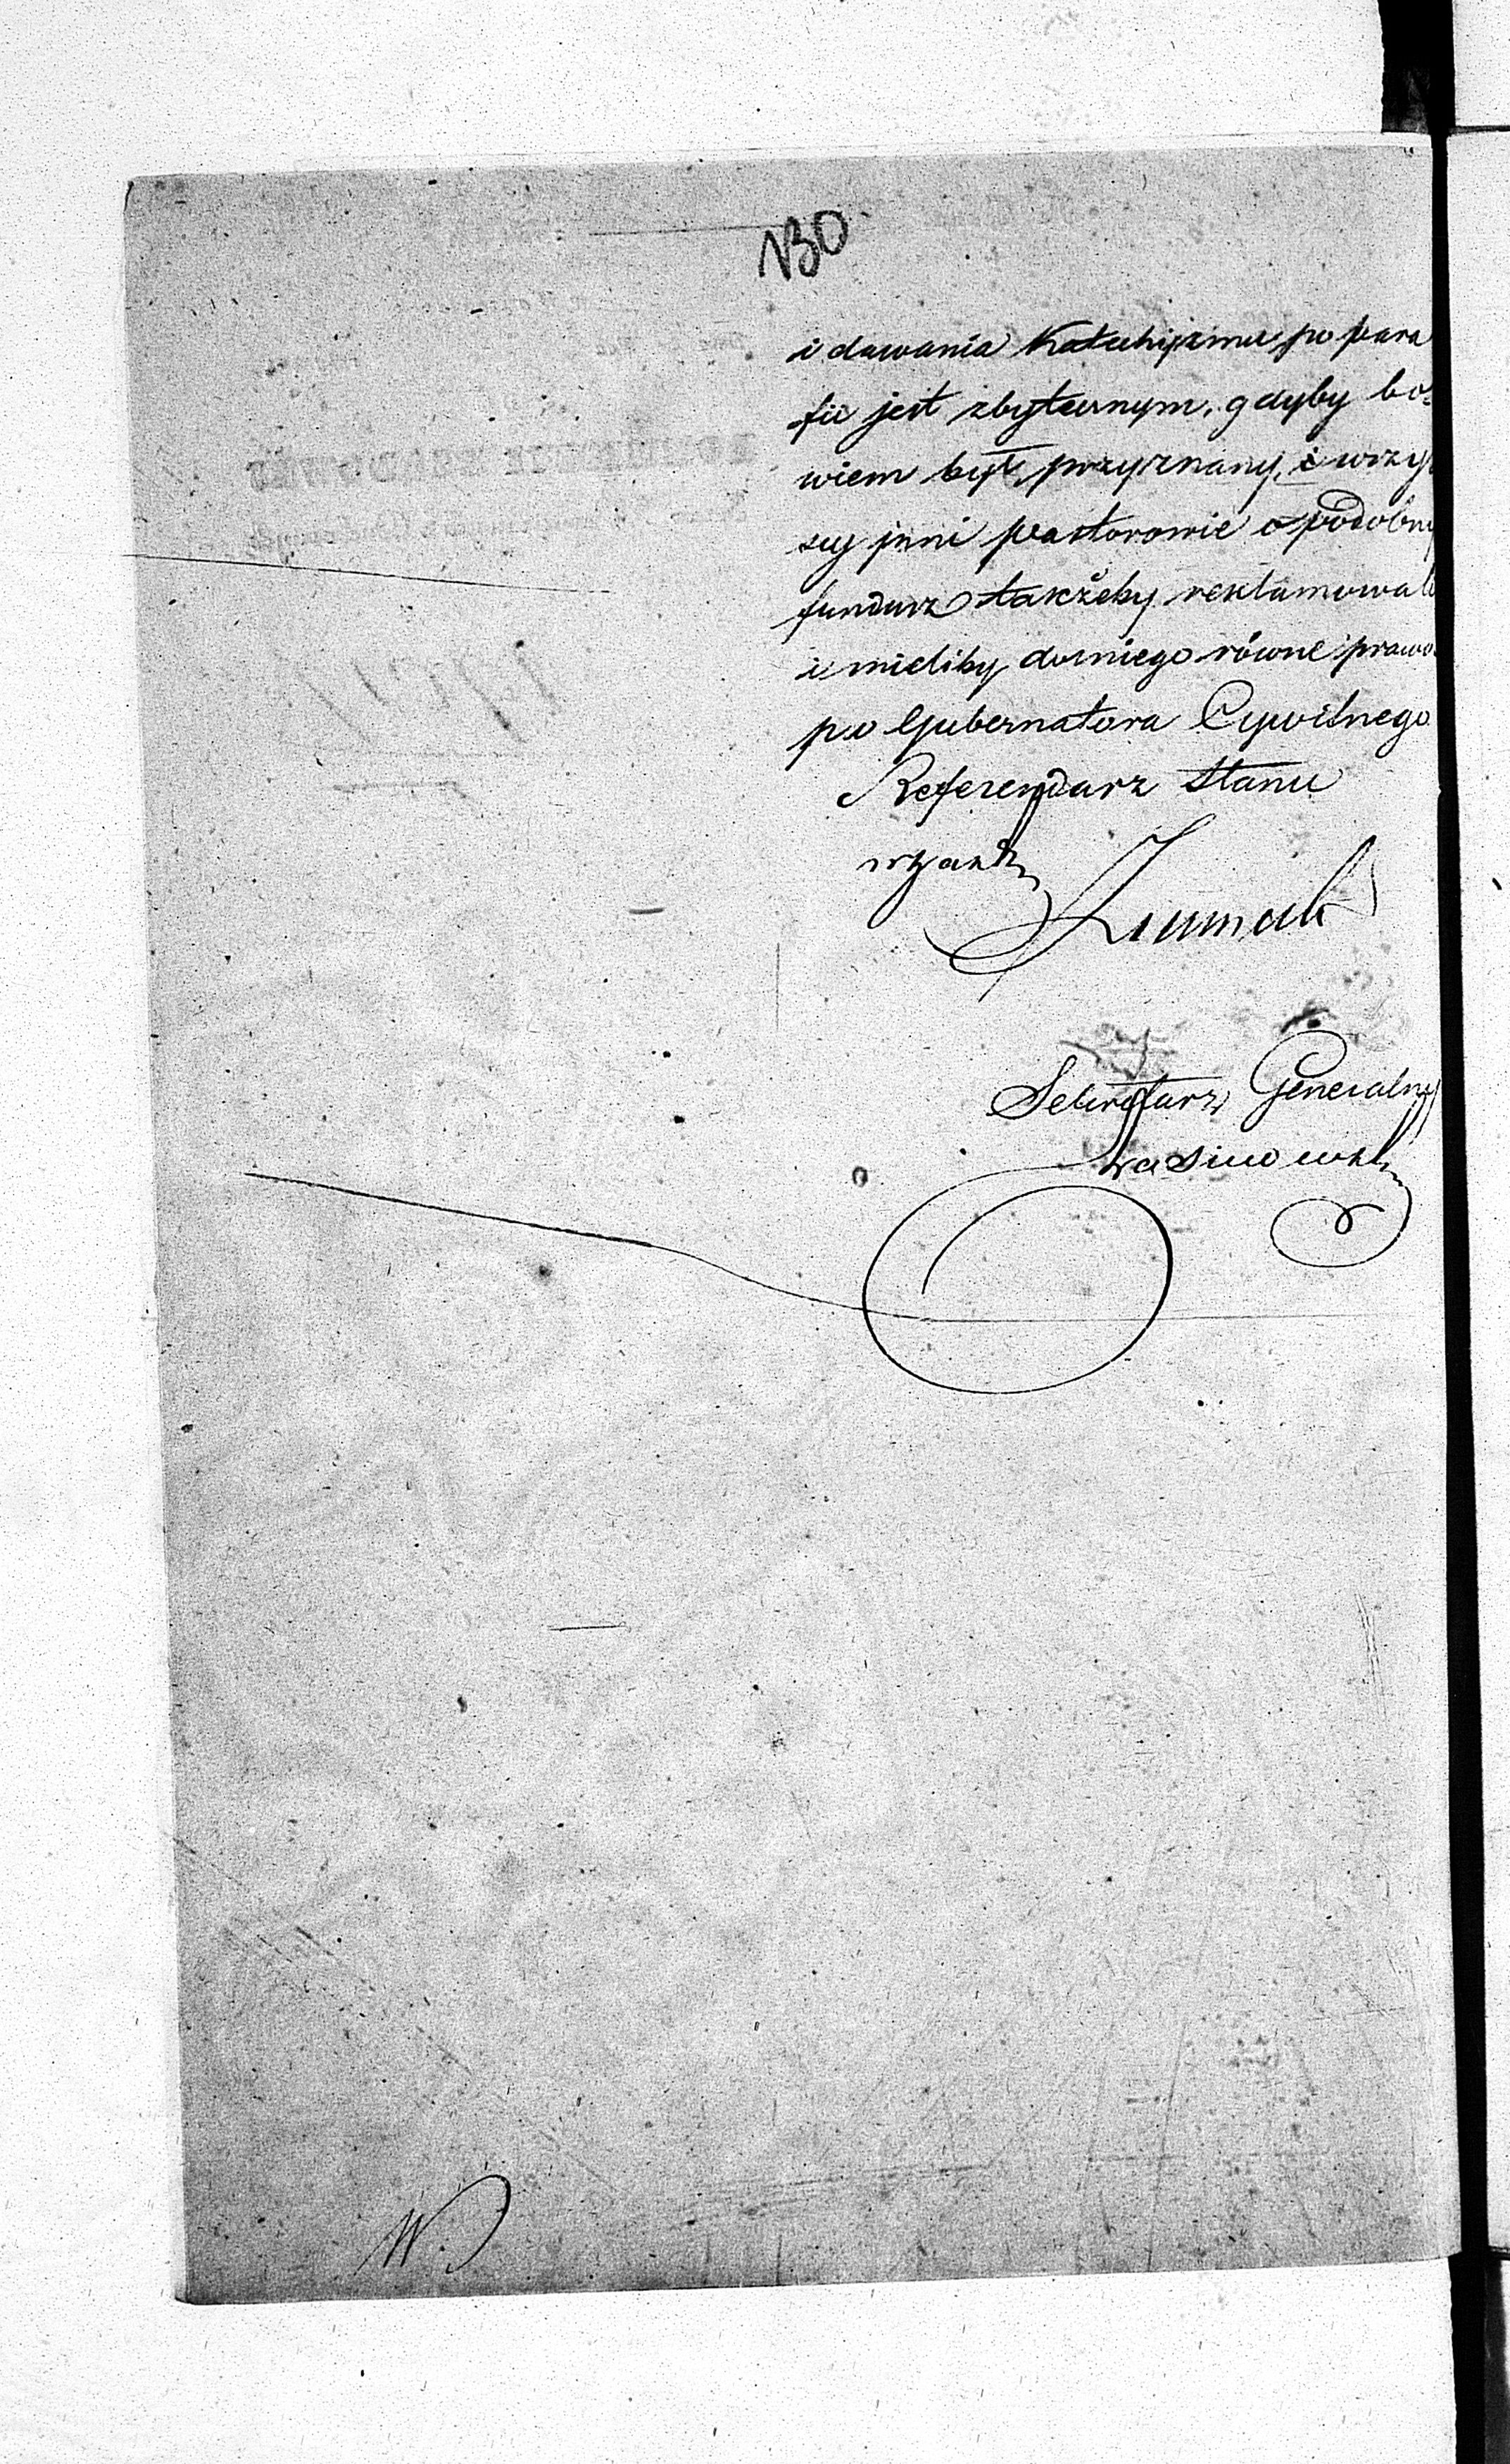 130
i dawania Katechizmu po para
fii jest zbytecznym, gdyby bo=
wiem był przyznany, i wszys
scy inni pastorowie o podobny
fundusz takżeby reklamowali
i mieliby do niego równe prawo.
po Gubernatora Cywilnego
Referendarz Stanu
Sekretarz Generalny
W.